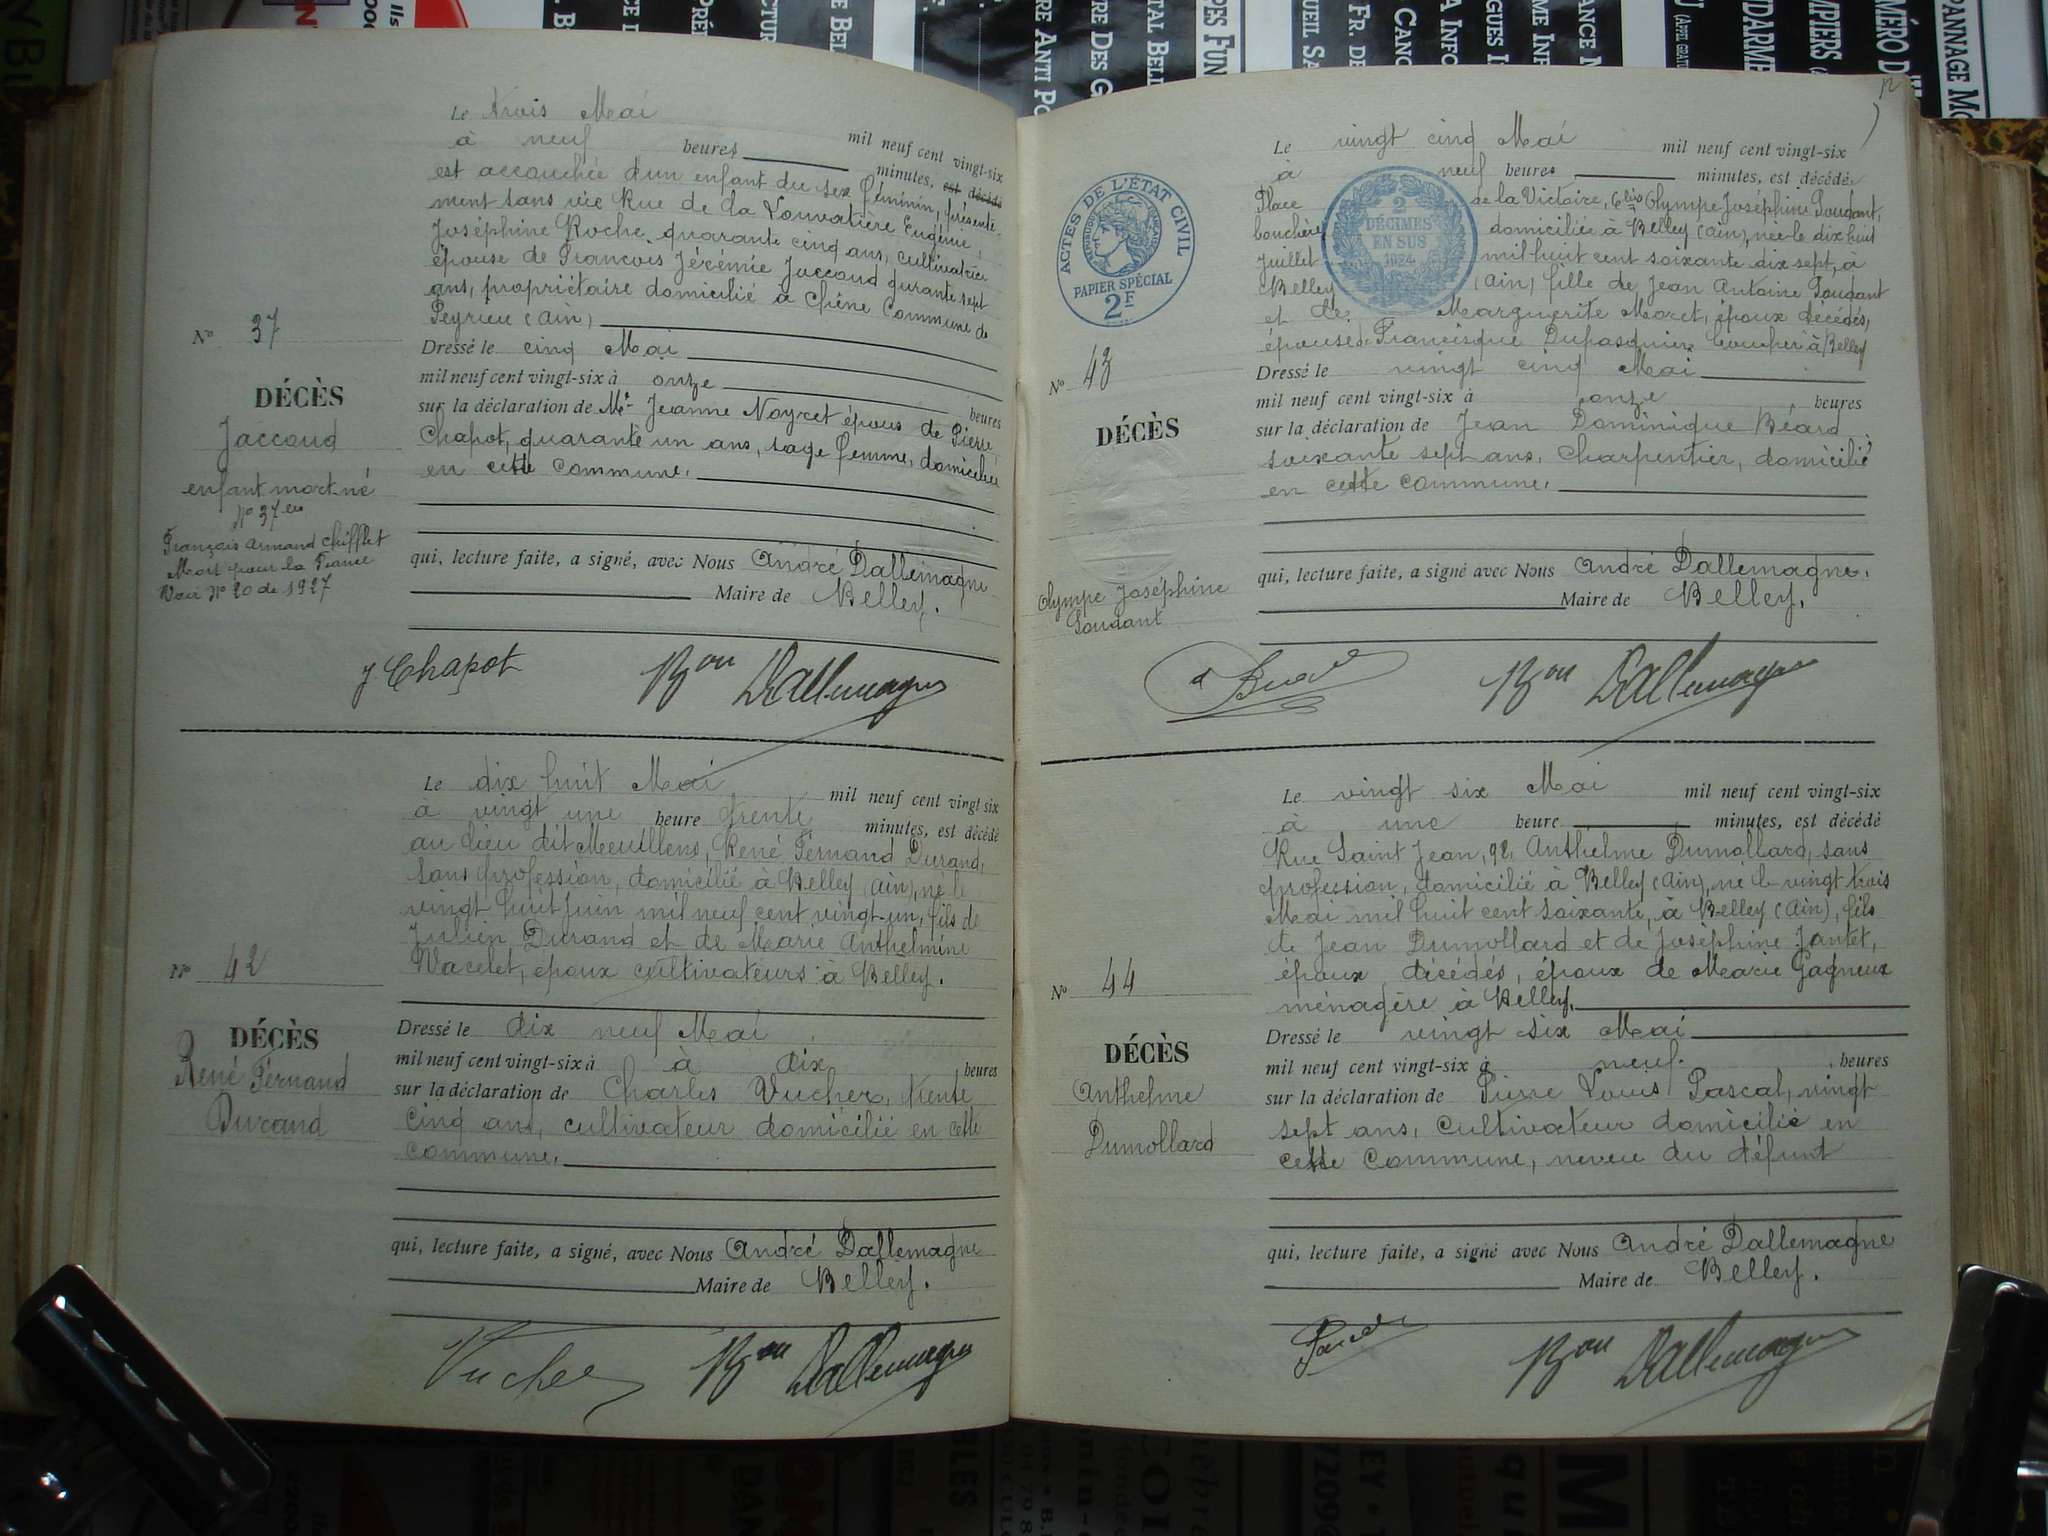 Le trois Mai mil neuf cent vingt-six
à neuf heures minutes, est décédé
est accouchée d'un enfant du sex féminin, présenté-
ment sans vie Rue de la Louvatière Eugénie
Joséphine Roche, quarante cinq ans, cultivatrice
épouse de François Jérémie Jaccoud qurante sept
ans, propriétaire domicilié à Chêne Commune de
Peyrieu (Ain)
N° 37
DÉCÈS
Jaccoud
enfant mort né
N° 37 bis
François Armand Chifflet
Mort pour la France
Voir N° 20 de 1927
Dressé le cinq Mai
mil neuf cent vingt-six à onze heures
sur la déclaration de Me Jeanne Noyret épous de Pierre
Chapot, quarante un ans, sage femme, domiciliée
en cette commune.
qui, lecture faite, a signé, avec Nous André Dallemagne
Maire de Belley.
J Chapot Bon Dallemagne
Le dix huit Mai mil neuf cent vingt six
à vingt une heure trente minutes, est décédé
au lieu dit Meuillens, René Fernand Durand,
sans profession, domicilié à Belley (Ain), né le
vingt huit juin mil neuf cent vingt-un, fils de
Julien Durand et de Marie Anthelmine
Vacelet, époux cultivateurs à Belley.
N° 42
DÉCÈS
René Fernand
Durand
Dressé le dix neuf Mai
mil neuf cent vingt-six à à dix heures
sur la déclaration de Charles Vucher, trente
cinq ans, cultivateur domicilié en cette
commune.
qui, lecture faite, a signé, avec Nous André Dallemagne
Maire de Belley.
Vucher Bon Dallemagne
Le vingt cinq Mai mil neuf cent vingt-six
à neuf heures minutes, est décédée
Place de la Victoire, Olympe Joséphine Goudant,
bouchère domiciliée à Belley (Ain), née le dix huit
Juillet mil huit cent soixante dix sept, à
Belley (Ain) fille de Jean Antoine Goudant
et de Marguerite Moret, époux décédés,
épouse de Francisque Dupasquier boucher à Belley
ACTES DE L'ÉTAT CIVIL
PAPIER SPÉCIAL
2F
2
DÉCIMES
EN SUS
1924
N° 43
DÉCÈS
Olympe Joséphine
Goudant
Dressé le vingt cinq Mai
mil neuf cent vingt-six à onze heures
sur la déclaration de Jean Dominique Béard
soixante sept ans, Charpentier, domicilié
en cette commune.
qui, lecture faite, a signé avec Nous André Dallemagne,
Maire de Belley.
Bon Dallemagne
Le vingt six Mai mil neuf cent vingt-six
à une heure minutes, est décédé
Rue Saint Jean, 92, Anthelme Dumollard, sans
profession, domicilié à Belley (Ain), né le vingt trois
Mai mil huit cent soixante, à Belley (Ain), fils
de Jean Dumollard et de Joséphine Jantet,
époux décédés, époux de Marie Gagneux
ménagère à Belley.
N° 44
DÉCÈS
Anthelme
Dumollard
Dressé le vingt six Mai
mil neuf cent vingt-six à neuf heures
sur la déclaration de Pierre Louis Pascal, vingt
sept ans, Cultivateur domicilié en
cette Commune, neveu du défunt
qui, lecture faite, a signé avec Nous André Dallemagne
Maire de Belley.
Pascal Bon Dallemagne